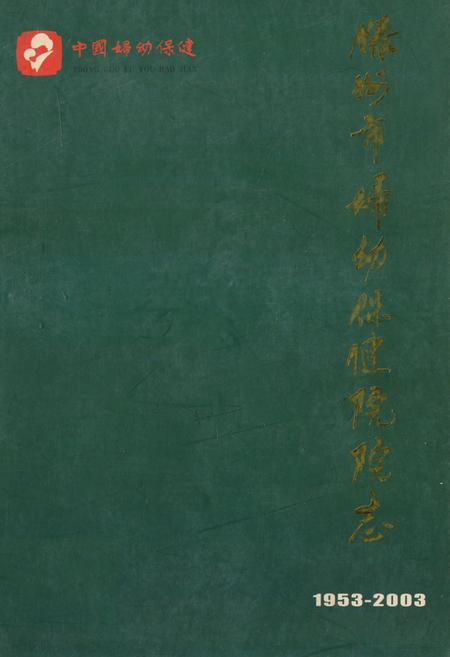 中國婦幼保健
ZHONG GUO FU YOU BAO JIAN
滕州市婦幼保健院院志
1953-2003